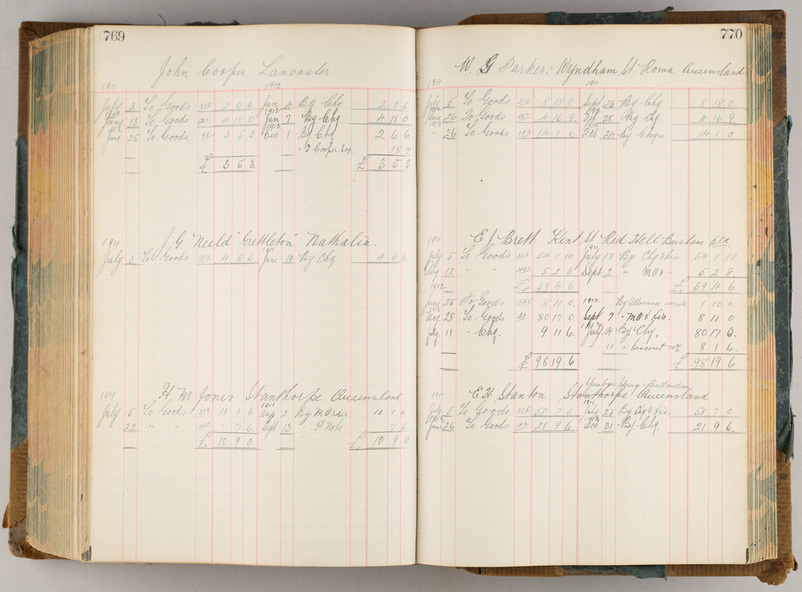 769
John Cooper Lancaster.
1911
July 3 To Goods 2 0 6 Jan 4 By Chq 2 0 6
13 To Goods 4 18 0 Jan 7 By Chq 4 18 0
June 25 To Goods 3 5 3 1 By Chq 2 6 6
" J Cooper 18 9
£ 3 5 3
J G "Neeld" Grettleton" Nathalia.
1911
July 3 To Goods 4 6 6 19 By Chq 4 6 6
H. M Jones Stanthorpe Queensland
1911
July 5 To Goods 10 1 6 Aug 2 By M Order 10 1 6
22 " " 7 6 Sept 13 " P Note 7 6
£ 10 9 0 £ 10 9 0
770
W. G Parker. Wyndham St. Roma Queensland
1911
July 5 To Goods 8 18 0 Sept 26 By Chq 8 18 0
June 26 To Goods 4 16 9 25 Chq 4 16 9
26 To Goods 14 1 0 Feb 24 By Cheque 14 1 0
E J Brett Kent St Red Hill Brisbane
1911
July 5 To Goods 54 1 10 July 17 By Chq 54 1 10
Aug 12 " " 5 2 8 Sept 2 " M O 5 2 8
1912 £ 59 4 6 £ 59 4 6
June 25 To Goods 8 11 0 1912 By Allowance 1 10 0
28 To Goods 80 17 0 Sept 7 " 8 11 0
11 " Chq. 9 11 6 July 9 By Chq. 80 17 0
" 11 " Discount 10% 8 1 6
£ 98 19 6 £ 98 19 6
E H Stanton Stanthorpe Queensland
1911
July 5 To Goods 58 7 0 July 27 By Chq 58 7 0
June 26 To Goods 21 9 6 31 By Chq 21 9 6